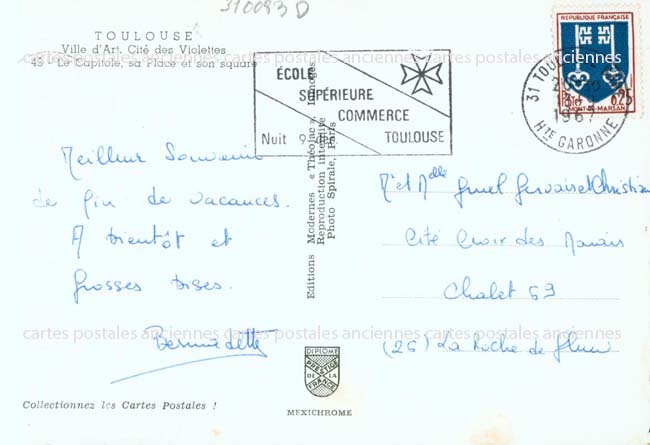 310093 D
TOULOUSE
Ville d'Art, Cité des Violettes
49 - Le Capitole, sa Place et son square
ÉCOLE
SUPÉRIEURE
COMMERCE
Nuit 9 TOULOUSE
REPUBLIQUE FRANÇAISE
Postes 0,25
MONT-DE-MARSAN
31 TOULOUSE
1967
HTE GARONNE
Meilleur Souvenir
de fin de vacances.
A bientôt et
Grosses bises.
Bernadette
Editions Modernes « Théojac », Limoges
Reproduction interdite
Photo Spirale, Paris
M et Melle Gervaise et Christian
Cité Croix des Marais
Chalet 69
(26) La Roche de Glun
cartes postales anciennes cartes postales anciennes cartes postales anciennes
DIPLOME
PRESTIGE
DE LA
FRANCE
MEXICHROME
Collectionnez les Cartes Postales !